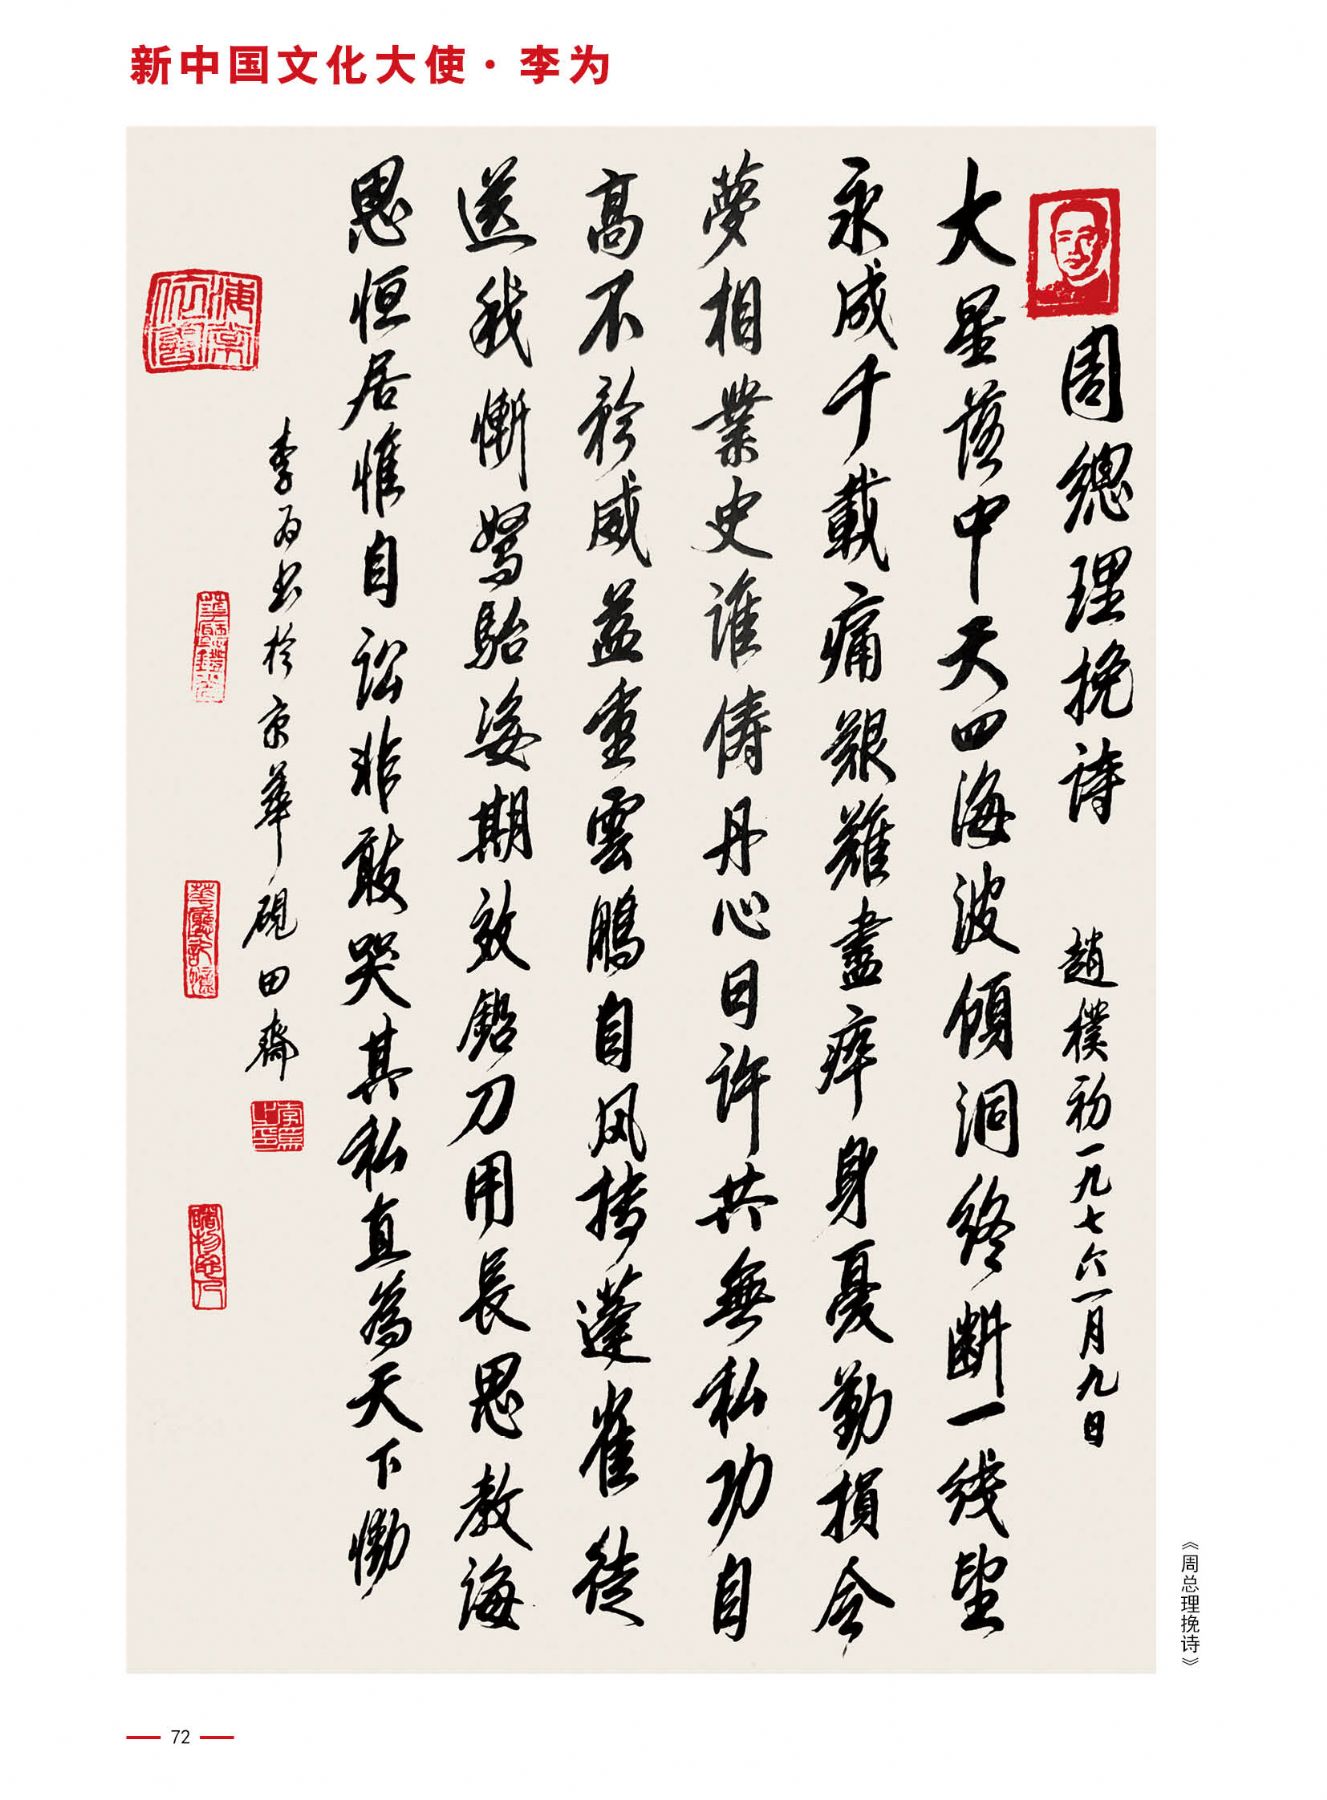 新中国文化大使·李为
周總理挽诗 趙樸初一九七六一月九日
大星落中天四海波傾洞终断一线望
永成千載痛艱難盡瘁身憂勤損令
夢相業史谁儔丹心日许共無私功自
高不矜威益重雲鵬自风摶蓬雀徒
送我慚駑駘姿期效鉛刀用長思教诲
恩恒居惟自訟非敢哭其私直為天下慟
李为书於京華硯田齋
《周总理挽诗》
72